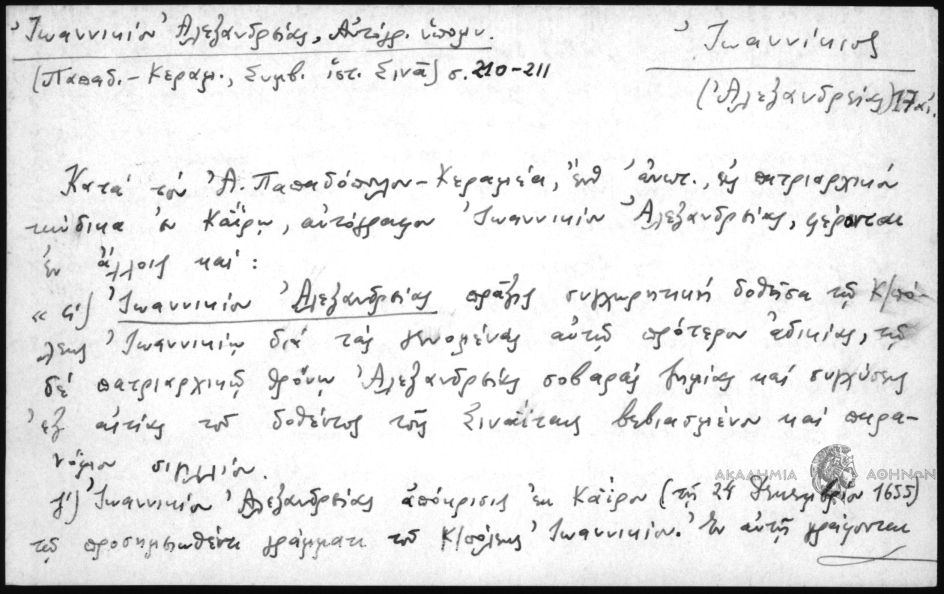 Ἰωαννικίου Ἀλεξανδρείας, Αὐτόγρ. ὑπομν.
(Παπαδ.-Κεραμ., Συμβ. ἱστ. Σινᾶ) σ. 210-211
Ἰωαννίκιος
(Ἀλεξανδρείας) 17 αἰ.
Κατά τόν Ἀ. Παπαδόπουλον-Κεραμέα, ἔνθ' ἀνωτ., εἰς πατριαρχικόν
κώδικα ἐν Καΐρῳ, αὐτόγραφον Ἰωαννικίου Ἀλεξανδρείας, φέρονται
ἐν ἄλλοις καί:
« ς) Ἰωαννικίου Ἀλεξανδρείας πρᾶξις συγχωρητική δοθεῖσα τῷ Κ/πό-
λεως Ἰωαννικίῳ διά τάς γενομένας αὐτῷ πρότερον ἀδικίας, τῷ
δέ πατριαρχικῷ θρόνῳ Ἀλεξανδρείας σοβαράς ζημίας καί συγχύσεις
ἐξ αἰτίας τοῦ δοθέντος τοῖς Σιναΐταις βεβιασμένου καί παρα-
νόμου σιγιλλίου.
ζ) Ἰωαννικίου Ἀλεξανδρείας ἀπόκρισις ἐκ Καΐρου (τῇ 24 Δεκεμβρίου 1655)
τῷ προσημειωθέντι γράμματι τοῦ Κ/πόλεως Ἰωαννικίου. Ἐν αὐτῇ γράφονται
ΑΚΑΔΗΜΙΑ ΑΘΗΝΩΝ